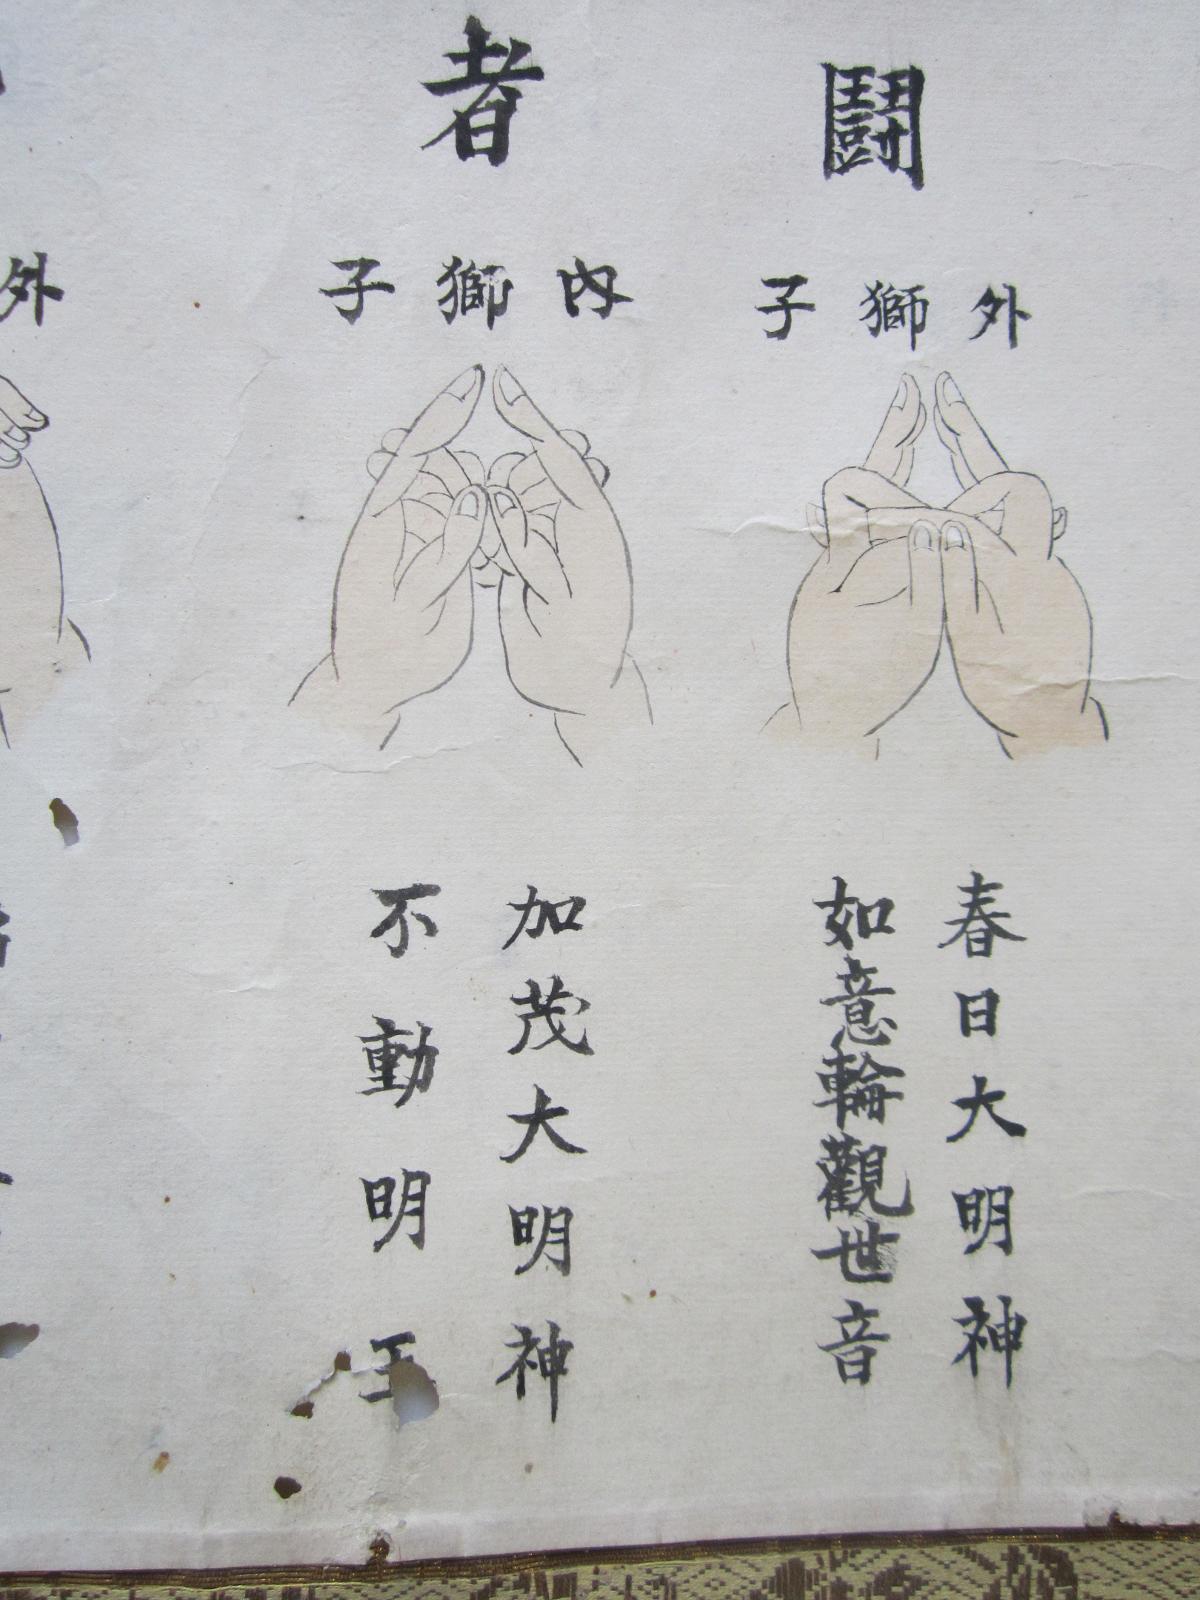 闘
外獅子
春日大明神
如意輪觀世音
者
內獅子
加茂大明神
不動明王
外